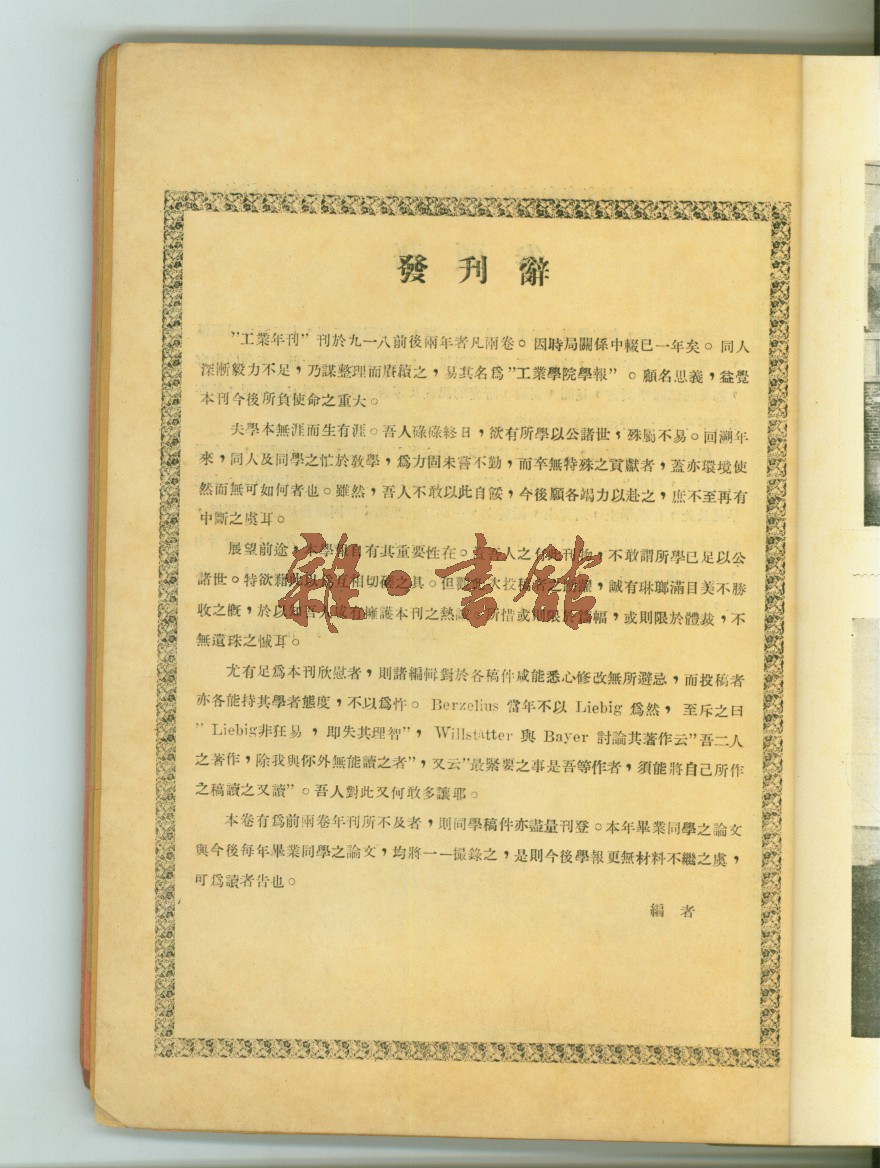 發刊辭
"工業年刊"刊於九一八前後兩年者凡兩卷。因時局關係中輟已一年矣。同人
深漸毅力不足，乃謀整理而賡續之，易其名爲"工業學院學報"。顧名思義，益覺
本刊今後所負使命之重大。
夫學本無涯而生有涯。吾人碌碌終日，欲有所學以公諸世，殊屬不易。回溯年
來，同人及同學之忙於敎學，爲力固未嘗不勤，而卒無特殊之貢獻者，蓋亦環境使
然而無可如何者也。雖然，吾人不敢以此自餒，今後願各竭力以赴之，庶不至再有
中斷之虞耳。
展望前途，本學報自有其重要性在。吾人之刊，不敢謂所學已足以公
諸世。特欲藉此以爲互相切磋之具。但此次投稿之，誠有琳瑯滿目美不勝
收之槪，於以知吾人咸有擁護本刊之熱誠。所惜或則限於篇幅，或則限於體裁，不
無遺珠之憾耳。
尤有足爲本刊欣慰者，則諸編輯對於各稿件咸能悉心修改無所避忌，而投稿者
亦各能持其學者態度，不以爲忤。Berzelius 當年不以 Liebig 爲然，至斥之曰
" Liebig非狂易，即失其理智"，Willstätter 與 Bayer 討論其著作云"吾二人
之著作，除我與你外無能讀之者"，又云"最緊要之事是吾等作者，須能將自己所作
之稿讀之又讀"。吾人對此又何敢多讓耶。
本卷有爲前兩卷年刊所不及者，則同學稿件亦盡量刊登。本年畢業同學之論文
與今後每年畢業同學之論文，均將一一撮錄之，是則今後學報更無材料不繼之虞，
可爲讀者吿也。
編者
雜·書館